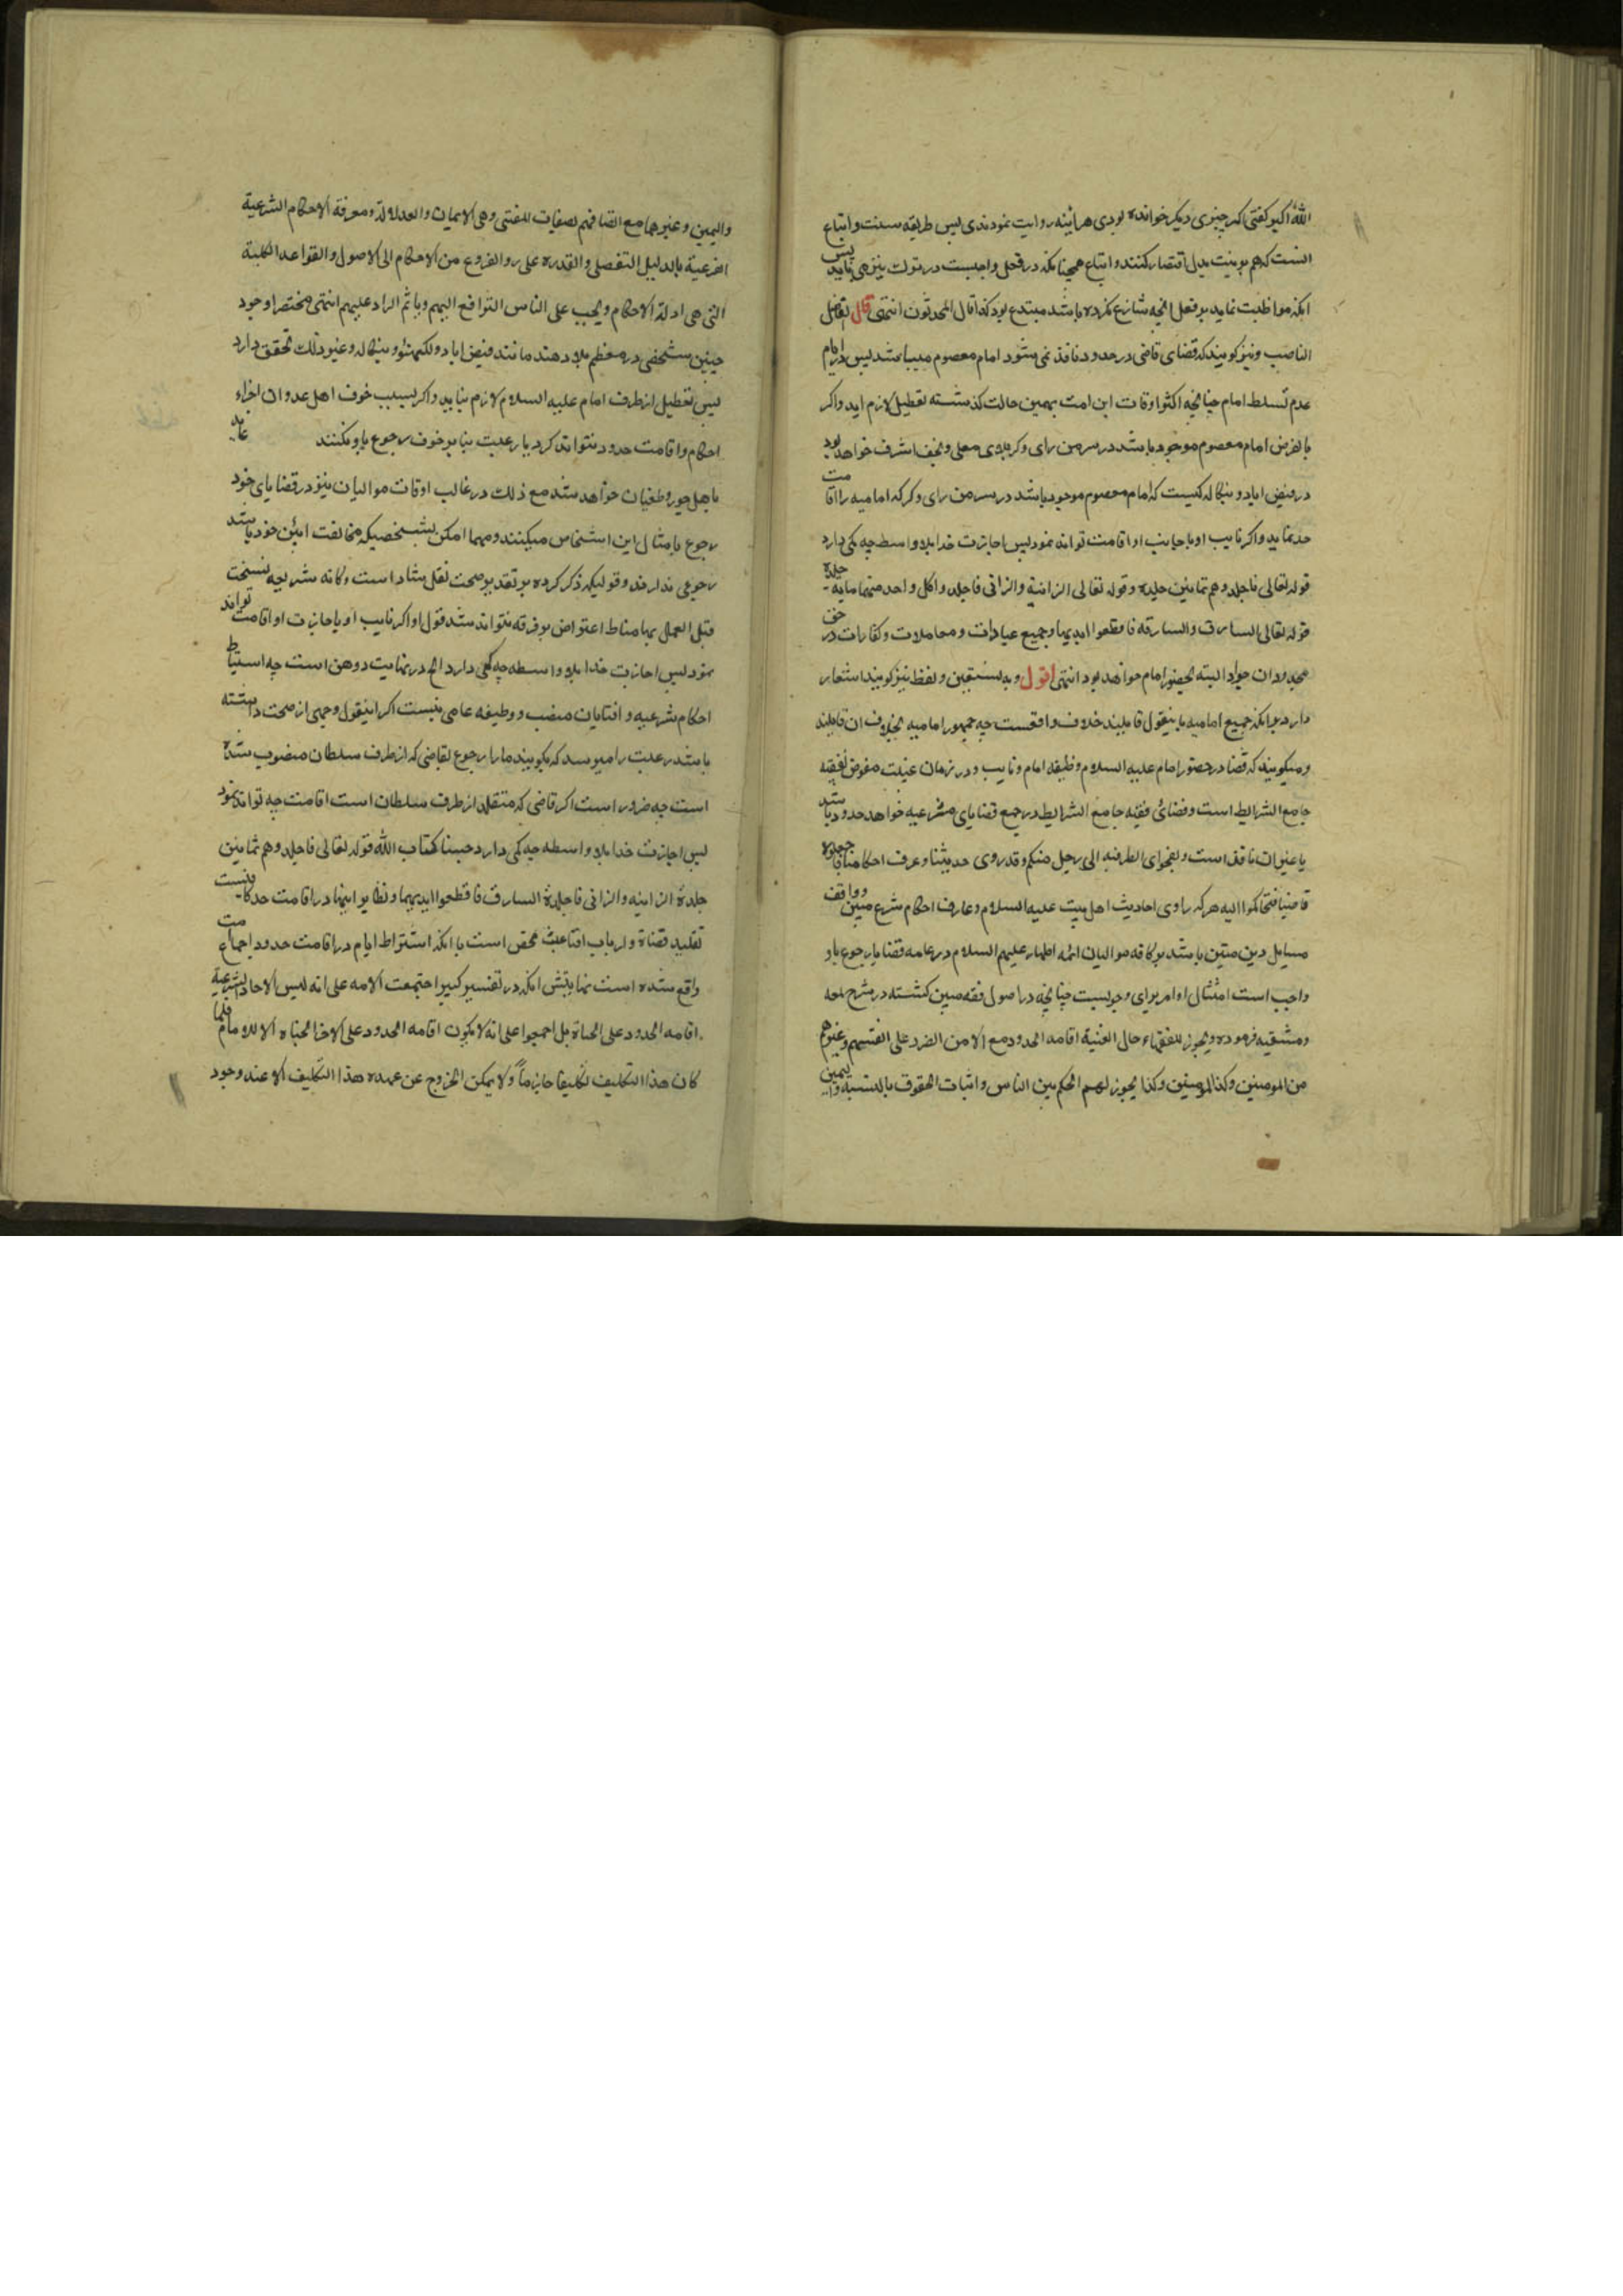 الله اکبر کفتی اکر چیزی دیکر خوانده بودی هر آئینه روایت نمودندی پس طریقه سنت و اتباع
انست که هم بر نیت بدل اقتصار کنند و اتباع همچنانکه در فعل واجبست در ترک نیز می باید پس
انکه مواظبت نماید بر فعل انچه شارع نکرده باشد مبتدع بود کذا قال المحدثون انتهی قال الفاضل
الناصب و نیز کویند که قضای قاضی در حدود نافذ نمی شود امام معصوم میباشد پس در ایام
عدم تسلط امام چنانچه اکثر اوقات این امت بهمین حالت کذشته تعطیل لازم اید و اکر
بالفرض امام معصوم موجود باشد در سر من رای و کربلای معلی و نجف اشرف خواهد بود
در فیض اباد و بنکاله کیست که امام معصوم موجود باشد در سر من رای و کر که امامیه را اقامت
حد نماید و اکر نایب او باجانب او اقامت تواند نمود پس اجازت خدا بلا واسطه چه کمی دارد
قوله تعالی فاجلدوهم ثمانین جلدة و قوله تعالی الزانیة و الزانی فاجلدوا کل واحد منهما مایة جلدة
قوله تعالی السارق و السارقة فاقطعوا ایدیهما و جمیع عبادات و معاملات و کفارات در حق
محدودان جواد البته بحضور امام خواهد بود انتهی اقول و به نستعین و لفظ نیز کویند اشعار
دارد برانکه جمیع امامیه باینقول قایلیند خلاف واقعست چه جمهور امامیه بخلاف ان قایلند
و میکویند که قضا در حضور امام علیه السلام وظیفه امام و نایب و در زمان غیبت مفوض بفقیه
جامع الشرایط است و قضائ فقیه جامع الشرایط در جمیع قضایای شرعیه خواهد حدود باشد
یا غیر ان نافذ است و بفحوای انظر فیه الی رجل منکم قد روی حدیثنا و عرف احکامنا فاجعلوه
قاضیا فتحاکموا الیه هر که راوی احادیث اهل بیت علیه السلام و عارف احکام شرع مبین و واقف
مسایل دین متین باشد بر کافه موالیان ائمه اطهار علیهم السلام در عامه قضایا رجوع باو
واجب است امتثال اوامر برای وجوبست چنانچه در اصول فقه مبین کشته در شرح لمعه
دمشقیه فرموده و یجوز للفقهاء حال الغیبة اقامه الحدود مع الامن الضرر علی انفسهم و غیرهم
من المومنین و کذا المومنین و کذا یجوز لهم الحکم بین الناس و اثبات الحقوق بالبینة و الیمین
والیمین و غیرهما مع اتصافهم بصفات المفتی و هی الایمان و العدالة و معرفة الاحکام الشرعیة
الفرعیة بالدلیل التفصلی و القدره علی رد الفروع من الاحکام الی الاصول و القواعد الکلیة
التی هی ادلة الاحکام و یجب علی الناس الترافع الیهم و یاثم الراد علیهم انتهی مختصرا وجود
چنین شخصی در معظم بلاد هند مانند فیض اباد و لکهنئو و بنکاله و غیر ذلک تحقق دارد
پس تعطیل از طرف امام علیه السلام لازم نیاید و اکر بسبب خوف اهل عدوان اجراء
احکام و اقامت حدود نتواند کرد یا رعیت بنا بر خوف رجوع باو نکنند
باهل جور و طغیان خواهد شد مع ذلک در غالب اوقات موالیان نیز در قضایای خود
رجوع بامثال این اشخاص میکینند و مهما امکن بشخصیکه مخالفت ائین خود باشد
رجوعی ندارند و قولیکه ذکر کرده بر تقدیر صحت نقل شاد است و کانه شریحه نسخت
قبل العمل بها مناط اعتراض بر فرقه نتواند شد قول او اکر نایب او یا جازت او اقامت تواند
نمود پس اجازت خدا بلا واسطه چه کمی دارد الخ در نهایت وهن است چه استنباط
احکام شرعیه و افتایان منصب و وظیفه عامی نیست اکر اینقول وجهی از صحت داشته
باشد رعیت را میرسد که بکویند مارا رجوع بقاضی که از طرف سلطان منصوب شده
است چه ضرور است اکر قاضی که متقلد از طرف سلطان است اقامت چه تواند نمود
پس اجازت خدا بلا واسطه چه کمی دارد حسبنا کتاب الله قوله تعالی فاجلدوهم ثمانین
جلدة الزانیه و الزانی فاجلدة السارق فاقطعوا ایدیهما و نظایر اینها در اقامت حد کافیست
تقلید قضاة و ارباب افتا عبث محض است با انکه اشتراط امام در اقامت حدود اجماع
واقع شده است نمابتش انکه در تفسیر کبیر اجتمعت الامه علی انه لیس الاحاد الرعیة
اقامه الحدود علی الجناة بل اجمعوا علی انه لا یکون اقامه الحدود علی الاخر الجناه الا للامام فلما
کان هذا التکلیف تکلیفا جازماً و لا یمکن الخروج عن عهده هذا التکلیف الا عند وجود